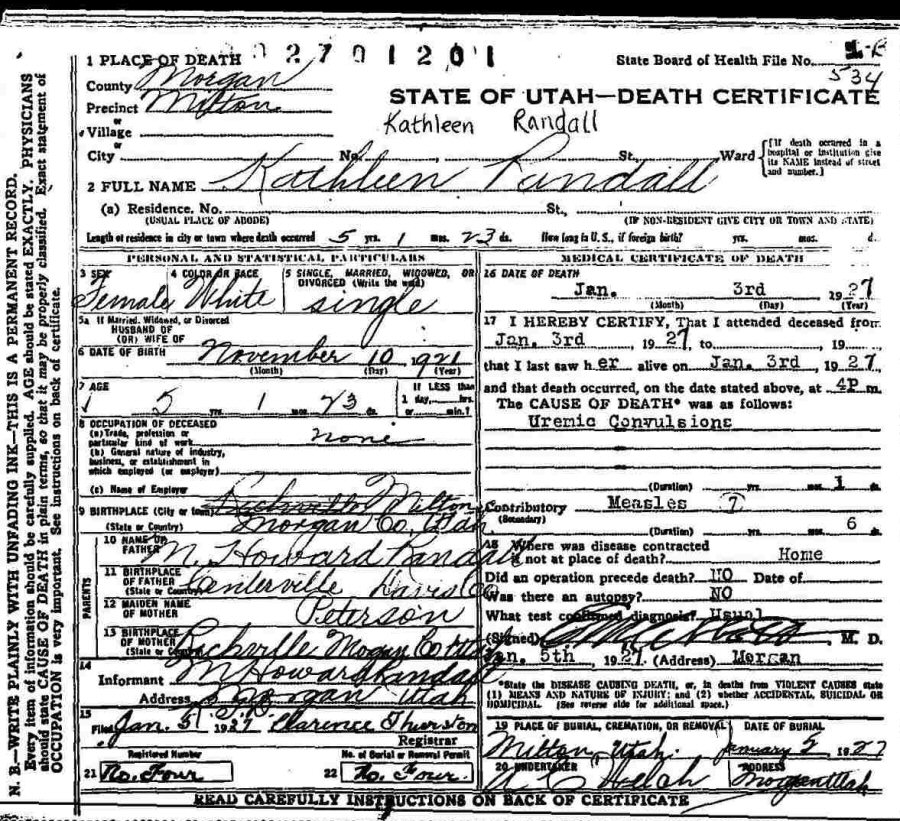 1 PLACE OF DEATH 02701201 State Board of Health File No. 1-B
County Morgan 534
Precinct Milton STATE OF UTAH—DEATH CERTIFICATE
or
Village Kathleen Randall
or
City No. St. Ward [If death occurred in a hospital or institution give its NAME instead of street and number.]
2 FULL NAME Kathleen Randall
(a) Residence. No. St.,
(USUAL PLACE OF ABODE) (IF NON-RESIDENT GIVE CITY OR TOWN AND STATE)
Length of residence in city or town where death occurred 5 yrs. 1 mos. 23 ds. How long in U. S., if foreign birth? yrs. mos. d.
PERSONAL AND STATISTICAL PARTICULARS
3 SEX 4 COLOR OR RACE 5 SINGLE, MARRIED, WIDOWED, OR DIVORCED (Write the word)
Female White single
5a If Married, Widowed, or Divorced
HUSBAND OF
(OR) WIFE OF
6 DATE OF BIRTH November 10 1921
(Month) (Day) (Year)
7 AGE If LESS than
5 yrs. 1 mos. 23 ds. 1 day,....hrs.
or....min.?
8 OCCUPATION OF DECEASED
(a) Trade, profession or
particular kind of work none
(b) General nature of industry,
business, or establishment in
which employed (or employer)
(c) Name of Employer
9 BIRTHPLACE (City or town) Milton
(State or Country) Morgan Co. Utah
PARENTS
10 NAME OF
FATHER M. Howard Randall
11 BIRTHPLACE
OF FATHER Centerville Davis Co
(State or Country)
12 MAIDEN NAME
OF MOTHER Peterson
13 BIRTHPLACE
OF MOTHER
(State or Country)
14
Informant M Howard Randall
Address Morgan Utah
15
Filed Jan. 5 1927 Clarence Thurston
Registrar
Registered Number No. of Burial or Removal Permit
21 No. Four 22 No. Four.
MEDICAL CERTIFICATE OF DEATH
16 DATE OF DEATH
Jan. 3rd 1927
(Month) (Day) (Year)
17 I HEREBY CERTIFY, That I attended deceased from
Jan. 3rd , 1927, to , 19
that I last saw her alive on Jan. 3rd , 1927
and that death occurred, on the date stated above, at 4P m.
The CAUSE OF DEATH* was as follows:
Uremic Convulsions
(Duration) yrs. mos. 1 ds.
Contributory Measles (?)
(Secondary)
(Duration) yrs. mos. 6 ds.
18 Where was disease contracted
if not at place of death? Home
Did an operation precede death? NO Date of
Was there an autopsy? NO
What test confirmed diagnosis? Usual
(Signed) M. D.
Jan. 5th , 1927. (Address) Morgan
*State the DISEASE CAUSING DEATH, or, in deaths from VIOLENT CAUSES state
(1) MEANS AND NATURE OF INJURY; and (2) whether ACCIDENTAL, SUICIDAL OR
HOMICIDAL. (See reverse side for additional space.)
19 PLACE OF BURIAL, CREMATION, OR REMOVAL DATE OF BURIAL
Milton, Utah. January 1927
20 UNDERTAKER ADDRESS
Morgan Utah
READ CAREFULLY INSTRUCTIONS ON BACK OF CERTIFICATE
N. B.—WRITE PLAINLY WITH UNFADING INK—THIS IS A PERMANENT RECORD.
Every item of information should be carefully supplied. AGE should be stated EXACTLY. PHYSICIANS
should state CAUSE OF DEATH in plain terms, so that it may be properly classified. Exact statement of
OCCUPATION is very important. See instructions on back of certificate.